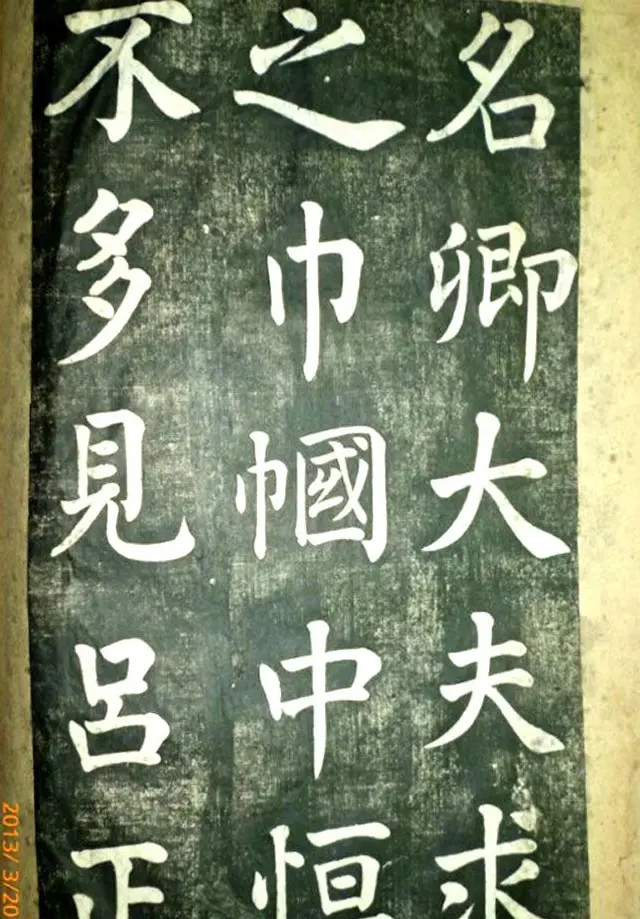 名卿大夫求
之巾幗中恒
不多見呂正
2013/ 3/20